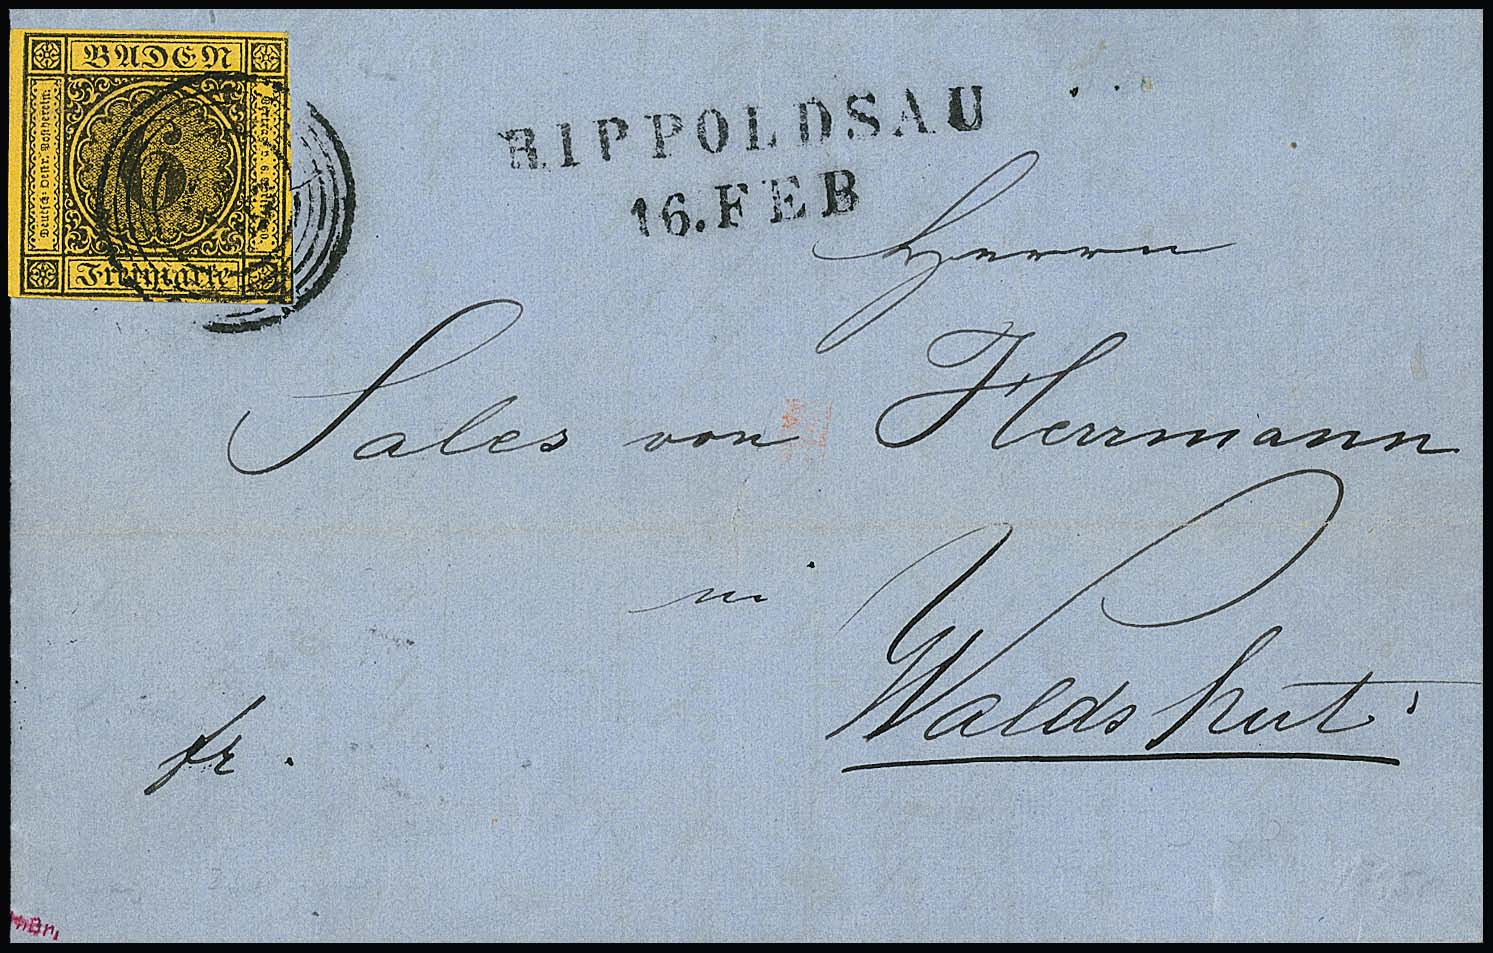 BADEN
Deutsch-Oestr. Postverein
6
Freimarke
RIPPOLDSAU
16. FEB
Herrn
Sales von Herrmann
in
Waldshut
fr.
Br.